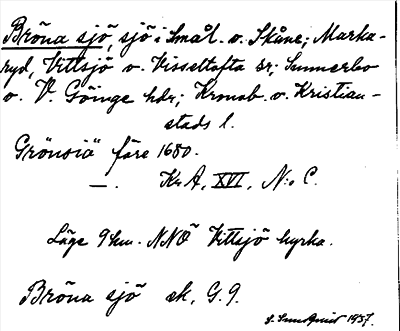 Bröna sjö, sjö i Smål. o. Skåne; Marka-
ryd, Vittsjö o. Visseltofta sr; Sunnerbo
o. V. Göinge hdr; Kronob. o. Kristian-
stads l.
Grönsiä före 1680.
—. KrA, XVI, N:o C.
Läge 9 km. NNÖ Vittsjö kyrka.
Bröna sjö ek, G. 9.
1937.